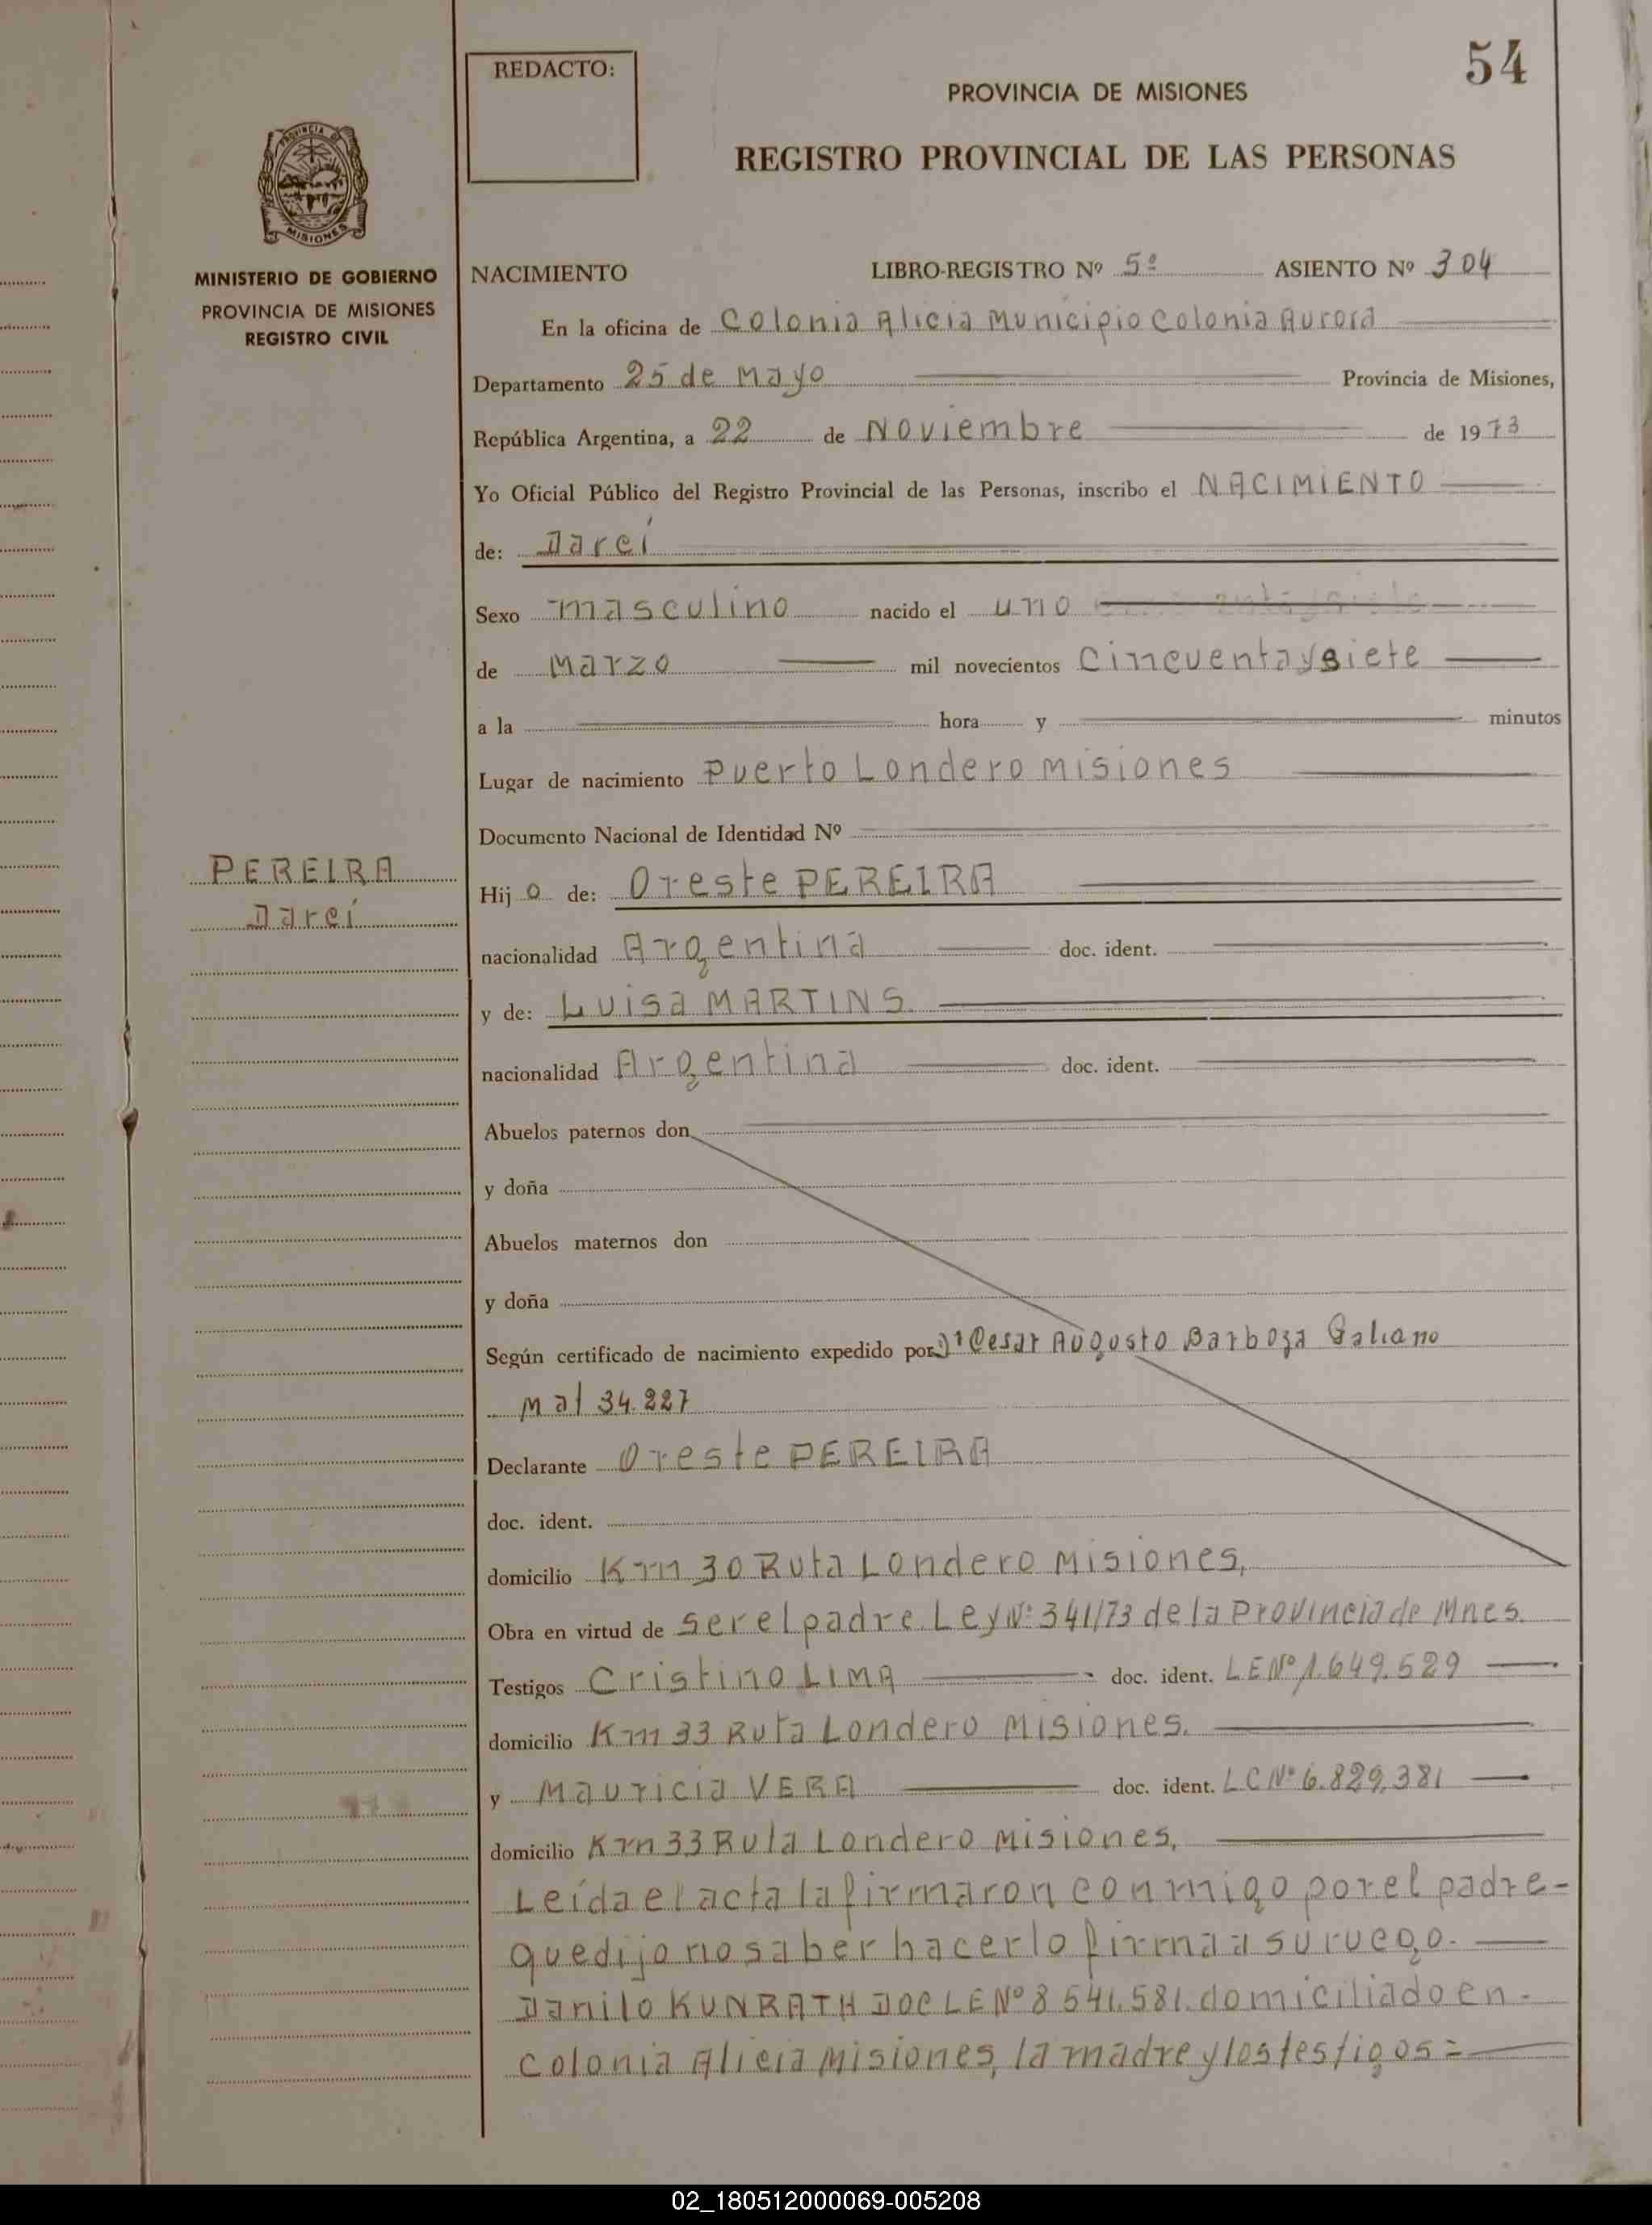 54
REDACTO:
PROVINCIA DE MISIONES
REGISTRO PROVINCIAL DE LAS PERSONAS
PROVINCIA DE
MISIONES
MINISTERIO DE GOBIERNO
PROVINCIA DE MISIONES
REGISTRO CIVIL
NACIMIENTO LIBRO-REGISTRO Nº 5º ASIENTO Nº 304
En la oficina de Colonia Alicia Municipio Colonia Aurora
Departamento 25 de Mayo Provincia de Misiones,
República Argentina, a 22 de Noviembre de 1973
Yo Oficial Público del Registro Provincial de las Personas, inscribo el NACIMIENTO
de: Darcí
Sexo masculino nacido el uno
de Marzo mil novecientos Cincuenta y siete
a la hora y minutos
Lugar de nacimiento Puerto Londero Misiones
Documento Nacional de Identidad Nº
PEREIRA
Darcí
Hij o de: Oreste PEREIRA
nacionalidad Argentina doc. ident.
y de: Luisa MARTINS
nacionalidad Argentina doc. ident.
Abuelos paternos don
y doña
Abuelos maternos don
y doña
Según certificado de nacimiento expedido por Dr Cesar Augusto Barboza Galiano
Mal 34.227
Declarante Oreste PEREIRA
doc. ident.
domicilio Km 30 Ruta Londero Misiones,
Obra en virtud de ser el padre. Ley Nº: 341/73 de la Provincia de Mnes.
Testigos Cristino LIMA doc. ident. LE Nº 1.649.529
domicilio Km 33 Ruta Londero Misiones.
y Mauricia VERA doc. ident. LC Nº 6.829.381
domicilio Km 33 Ruta Londero Misiones,
Leída el acta la firmaron conmigo por el padre-
que dijo no saber hacerlo firma a su ruego.
Danilo KUNRATH DOC LE Nº 8.541.581. domiciliado en-
Colonia Alicia Misiones, la madre y los testigos=
02_180512000069-005208